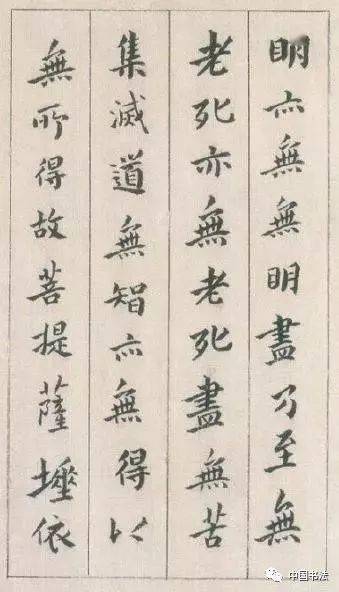 明亦無無明盡乃至無
老死亦無老死盡無苦
集滅道無智亦無得以
無所得故菩提薩埵依
中国书法